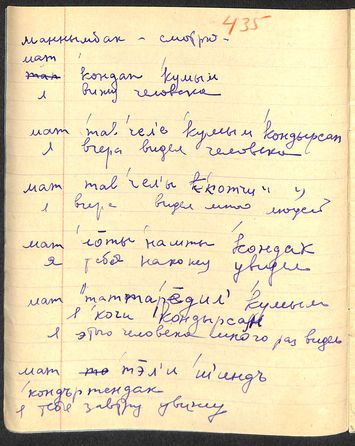 435
маннымбак - смотрю -
мат
кондап кумып
я вижу человека
мат тав чел'е кумып кондырсап
я вчера видел человека
мат тав чел'ы кочи
я вчера видел много людей
мат кондак
я тебя наконец увидел
мат кумып
кочи кондырсап
я этого человека много раз видел
мат тэл'и шиндъ
кондъртендак
я тебя завтра увижу